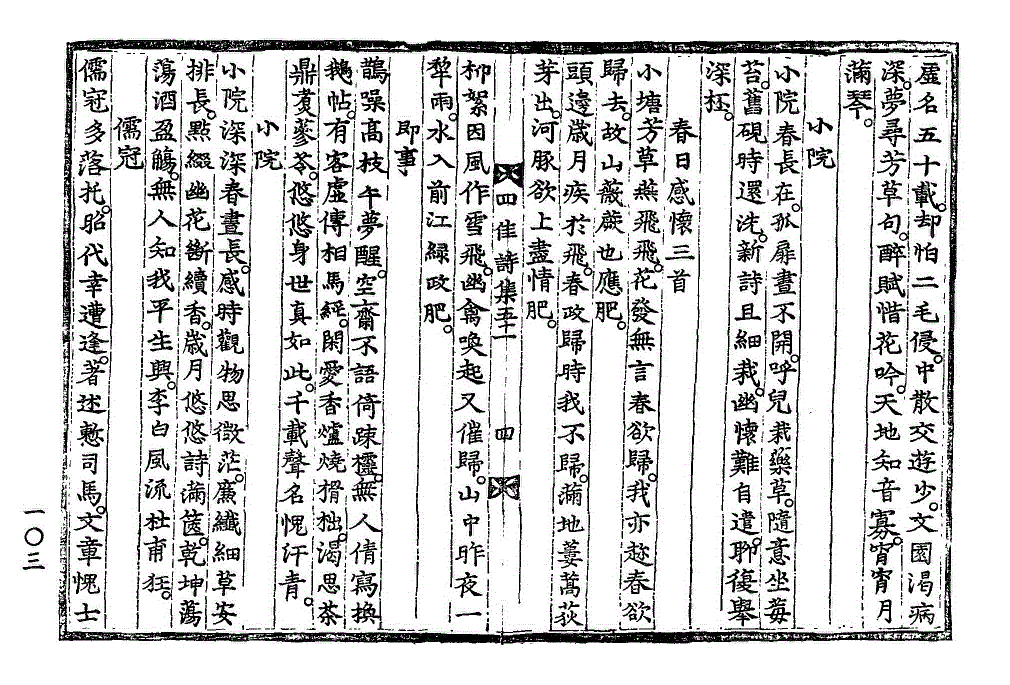 虛名五十載。却怕二毛侵。中散交遊少。文園渴病
深。夢尋芳草句。醉賦惜花吟。天地知音寡。宵宵月
滿琴。
小院
小院春長在。孤扉晝不開。呼兒栽藥草。隨意坐莓
苔。舊硯時還洗。新詩且細裁。幽懷難自遣。聊復舉
深柸。
春日感懷三首
小塘芳草燕飛飛。花發無言春欲歸。我亦趂春欲
歸去。故山薇蕨也應肥。
頭邊歲月疾於飛。春政歸時我不歸。滿地蔞蒿荻
芽出。河豚欲上盡情肥。
四佳詩集五十一 四
柳絮因風作雪飛。幽禽喚起又催歸。山中昨夜一
犂雨。水入前江綠政肥。
即事
鵲噪高枝午夢醒。空齋不語倚踈欞。無人倩寫換
鵝帖。有客虛傳相馬經。閑愛香爐燒榾柮。渴思茶
鼎煮蔘苓。悠悠身世眞如此。千載聲名愧汗青。
小院
小院深深春晝長。感時觀物思微茫。廉纖細草安
排長。點綴幽花斷續香。歲月悠悠詩滿篋。乾坤蕩
蕩酒盈觴。無人知我平生興。李白風流杜甫狂。
儒冠
儒冠多落托。昭代幸遭逢。著述慙司馬。文章愧士
一〇三